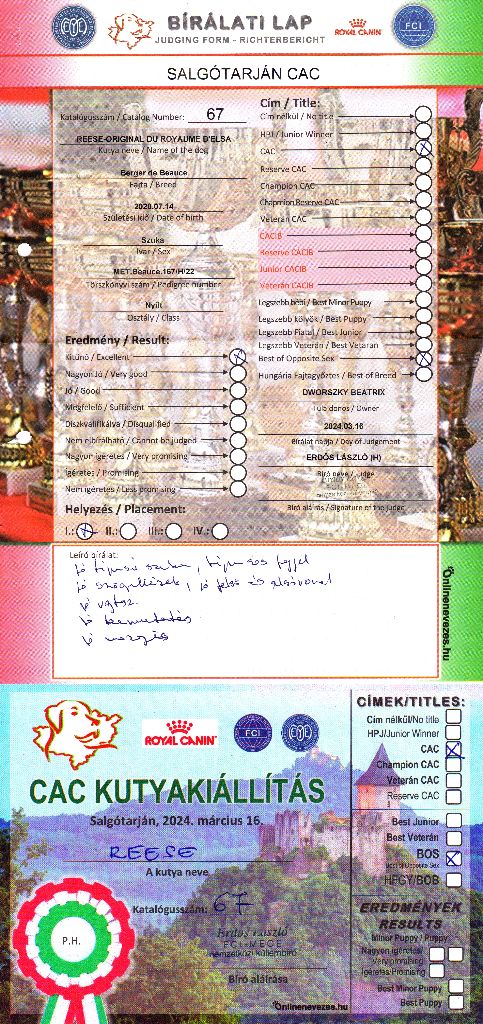 BÍRÁLATI LAP
JUDGING FORM - RICHTERBERICHT
ROYAL CANIN
FCI
SALGÓTARJÁN CAC
Katalógusszám / Catalog Number: 67
REESE-ORIGINAL DU ROYAUME D'ELSA
Kutya neve / Name of the dog
Berger de Beauce
Fajta / Breed
2020.07.14
Születési idő / Date of birth
Szuka
Ivar / Sex
MET.Beauce.167/H/22
Törszkönyvi szám / Pedigree number
Nyílt
Osztály / Class
Eredmény / Result:
Kitűnő / Excellent
Nagyon jó / Very good
Jó / Good
Megfelelő / Sufficient
Diszkvalifikálva / Disqualified
Nem elbírálható / Cannot be judged
Nagyon ígéretes / Very promising
Ígéretes / Promising
Nem ígéretes / Less promising
Helyezés / Placement:
I.: II.: III.: IV.:
Cím / Title:
Cím nélkül / No title
HPJ / Junior Winner
CAC
Reserve CAC
Champion CAC
Chapmion Reserve CAC
Veterán CAC
CACIB
Reserve CACIB
Junior CACIB
Veterán CACIB
Legszebb bébi / Best Minor Puppy
Legszebb kölyök / Best Puppy
Legszebb Fiatal / Best Junior
Legszebb Veterán / Best Vetaran
Best of Opposite Sex
Hungária Fajtagyőztes / Best of Breed
DWORSZKY BEATRIX
Tulajdonos / Owner
2024.03.16
Bírálat napja / Day of Judgement
ERDŐS LÁSZLÓ (H)
Bíró neve / Judge
Bíró aláírás / Signature of the judge
Leíró bírálat:
jó típusú szuka, típusos fejjel
jó szögellések, jó felső és alsóvonal
jó
jó bemutatás
jó mozgás
Onlinenevezes.hu
ROYAL CANIN
FCI
CAC KUTYAKIÁLLÍTÁS
Salgótarján, 2024. március 16.
REESE
A kutya neve
Katalógusszám: 67
Erdős László
FCI-MEOE
nemzetközi küllembíró
Bíró aláírása
P.H.
Onlinenevezes.hu
CÍMEK/TITLES:
Cím nélkül/No title
HPJ/Junior Winner
CAC
Champion CAC
Veterán CAC
Reserve CAC
Best Junior
Best Veterán
BOS
Best of Opposite Sex
HFGY/BOB
EREDMÉNYEK
RESULTS
Minor Puppy / Puppy
Nagyon ígéretes/
Very promising
Ígéretes/Promising
Best Minor Puppy
Best Puppy